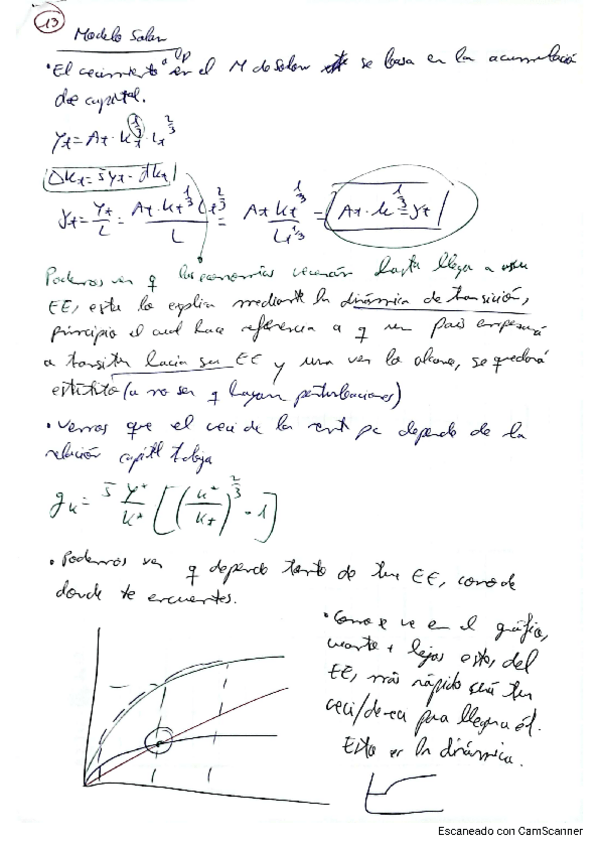 13
Modelo Solow
• El crecimiento a lp en el M de Solow se basa en la acumulación
de capital.
Yt = At · Kt^1/3 · Lt^2/3
ΔKt = s̄ Yt - d̄Kt
yt = Yt/L = At · Kt^1/3 Lt^2/3 / L = At Kt^1/3 / Lt^1/3 = At · k^1/3 = yt
Podemos ver q las economías crecerán hasta llegar a
EE, esto lo explica mediante la dinámica de transición,
principio el cual hace referencia a q un país empezará
a transitar hacia su EE y una vez lo alcance, se quedará
(a no ser q hayan perturbaciones)
• Vemos que el creci de la rent pc depende de la
relación capital trabaja
gk = s̄ Y*/K* [(K*/Kt)^2/3 - 1]
• Podemos ver q depende tanto de tu EE, como de
donde te encuentres.
• Como se ve en el gráfico,
cuanto + lejos estes, del
EE, más rápido será tu
creci/decrec para llegar a él.
Esto es la dinámica.
Escaneado con CamScanner